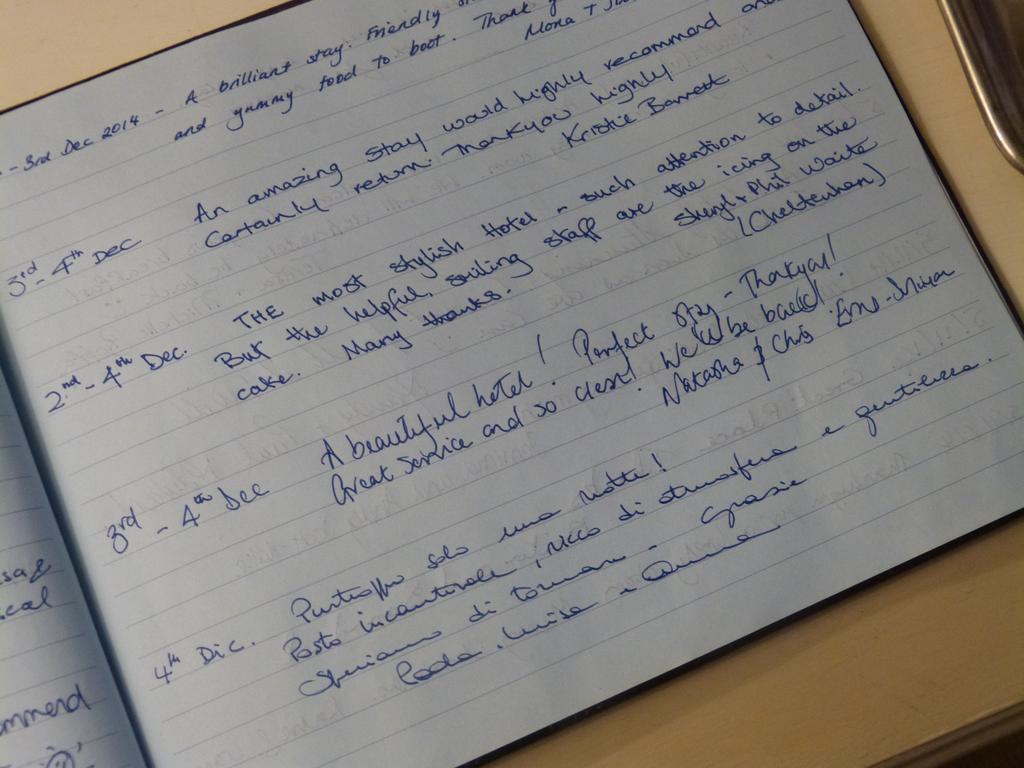 - 3rd Dec 2014 - A brilliant stay. Friendly
and yummy food to boot. Thank
Mona +
3rd - 4th Dec An amazing stay would highly recommend and
Certainly return. Thankyou highly
Kristie Barrett
2nd - 4th Dec. THE most stylish Hotel - such attention to detail.
But the helpful, smiling staff are the icing on the
cake. Many thanks. Sheryl + Phil Waite
(Cheltenham)
3rd - 4th Dec A beautiful hotel! Perfect stay - Thankyou!
Great service and so clean! We'll be back!
Natasha & Chris
4th Dic. Purtroppo solo una notte!
Posto incantevole, ricco di atmosfera e gentilezza.
Speriamo di tornare - Grazie
Paola, Luisa e
ommend